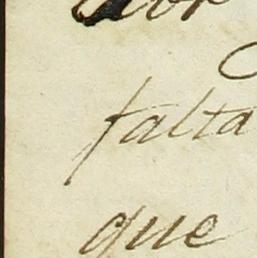 falta
que